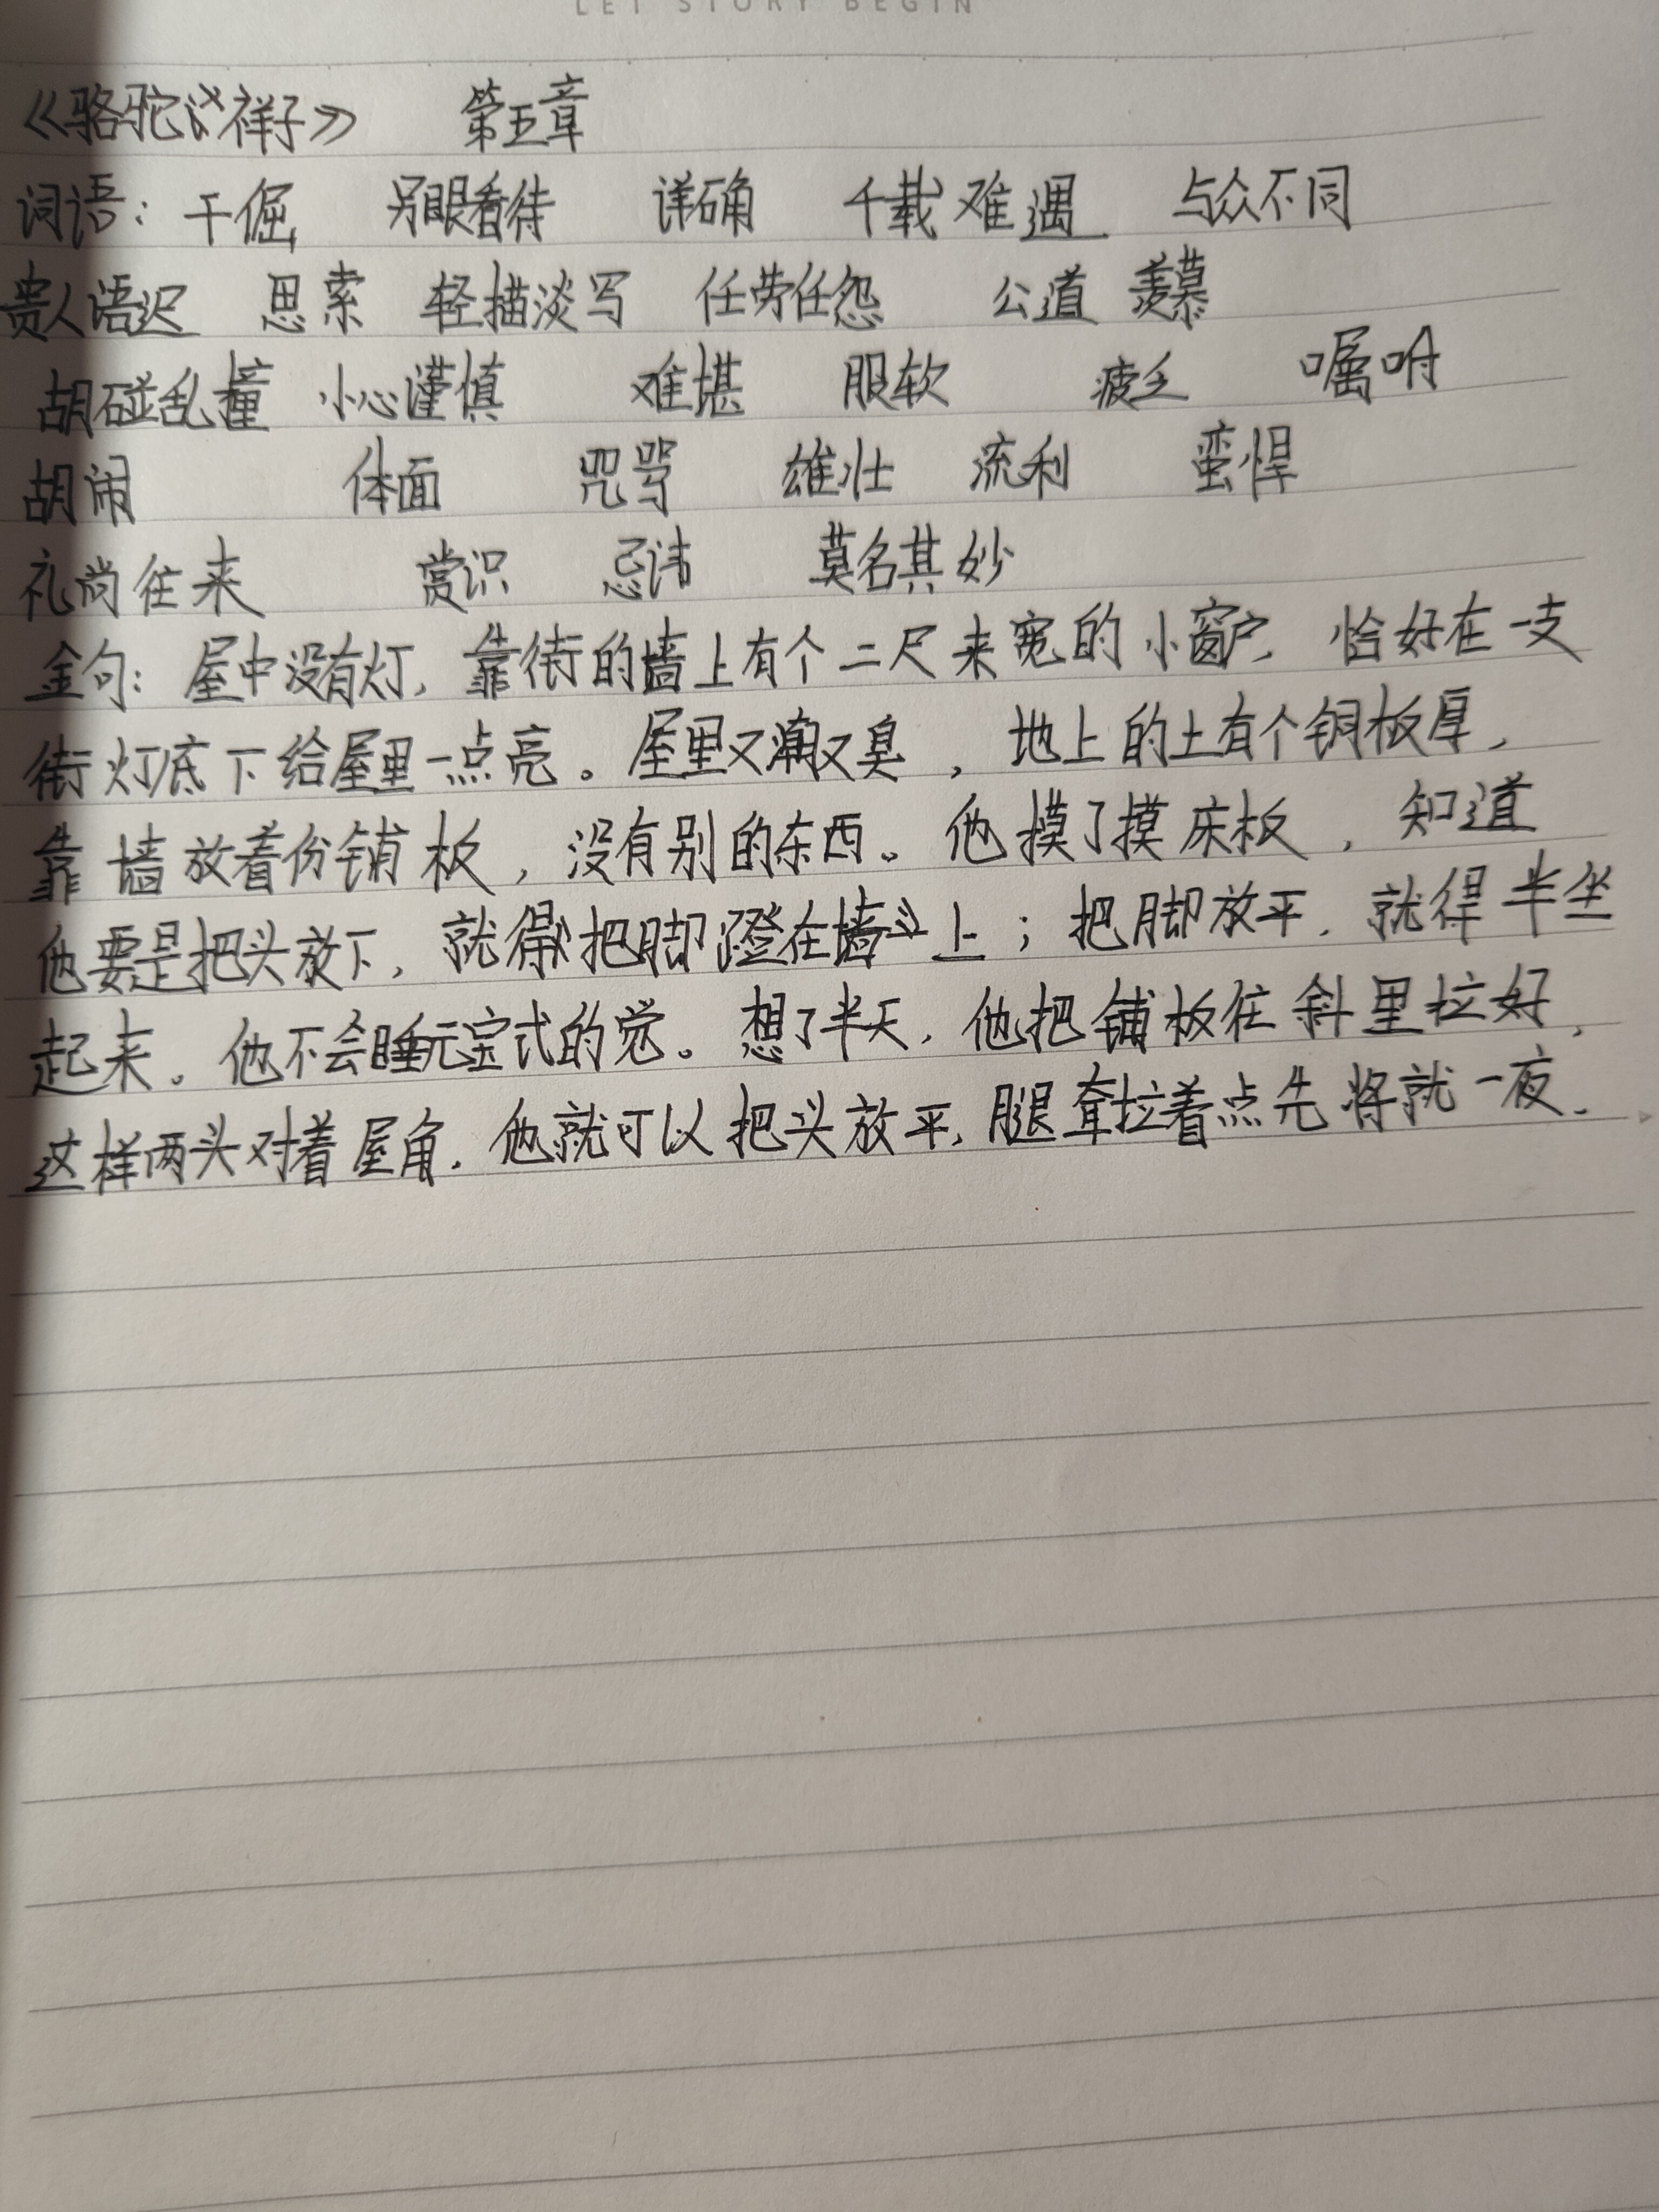 LET STORY BEGIN
《骆驼祥子》 第五章
词语：干倔 另眼看待 详确 千载难遇 与众不同
贵人语迟 思索 轻描淡写 任劳任怨 公道 羡慕
胡碰乱撞 小心谨慎 难堪 服软 疲乏 嘱咐
胡闹 体面 咒骂 雄壮 流利 蛮悍
礼尚往来 赏识 忌讳 莫名其妙
金句：屋中没有灯，靠街的墙上有个二尺来宽的小窗户，恰好在一支
街灯底下给屋里一点亮。屋里又潮又臭，地上的土有个铜板厚，
靠墙放着份铺板，没有别的东西。他摸了摸床板，知道
他要是把头放下，就得把脚蹬在墙上；把脚放平，就得半坐
起来。他不会睡元宝式的觉。想了半天，他把铺板往斜里拉好，
这样两头对着屋角，他就可以把头放平，腿耷拉着点先将就一夜。